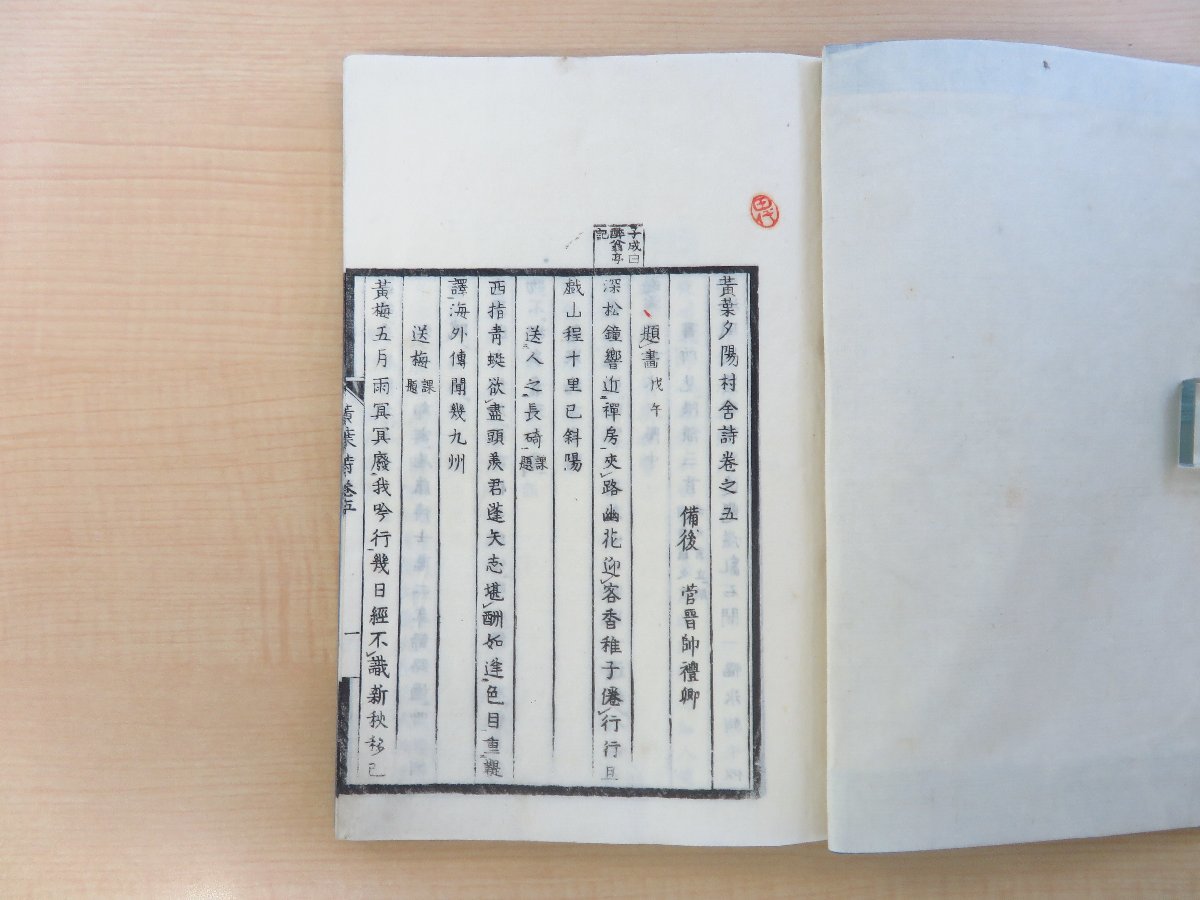 子成曰
醉翁亭
記
黃葉夕陽村舍詩卷之五
備後 菅晉帥禮卿
題畫 戊午
深松鐘響近禪房夾路幽花迎客香稚子倦行行且
戯山程十里已斜陽
送人之長碕 課題
西指靑蜓欲盡頭羨君蓬矢志堪酬如逢色目重鞮
譯海外傳聞幾九州
送梅 課題
黃梅五月雨冥冥廢我吟行幾日經不識新秧移已
黃葉詩卷五
一